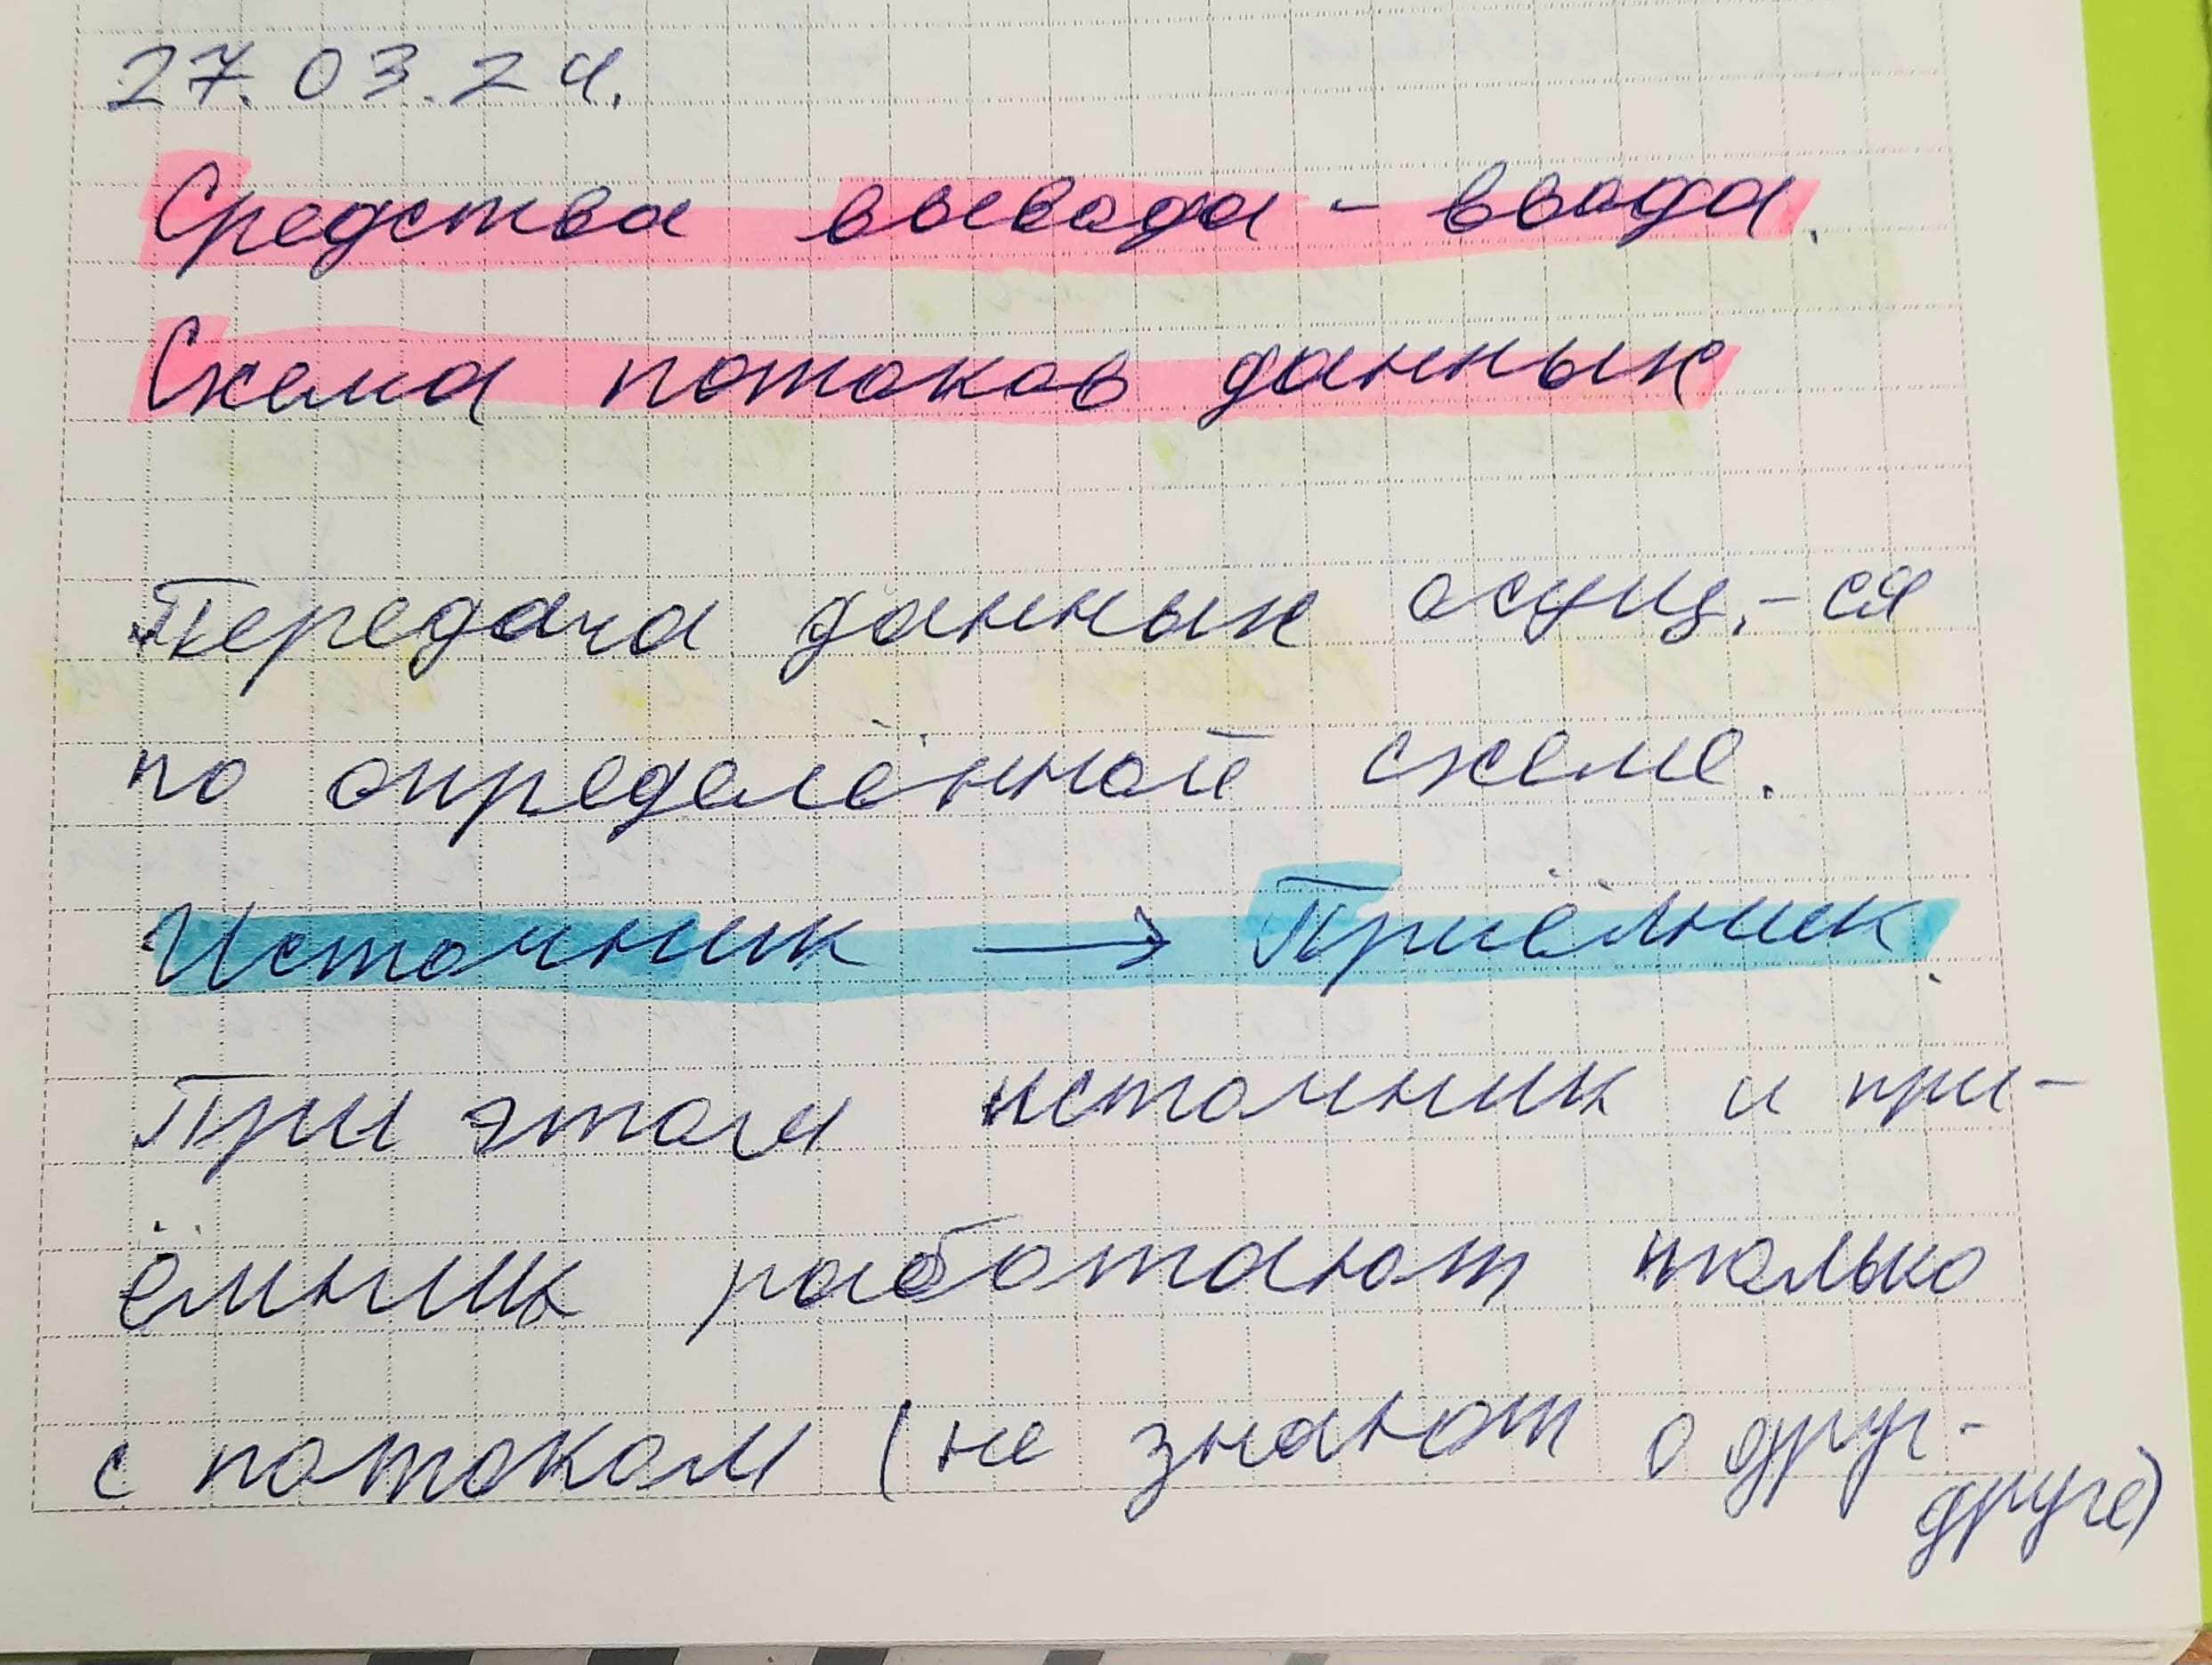 27.03.24.
Средства вывода - ввода.
Схема потоков данных
Передача данных осущ.-ся
по определённой схеме.
Источник → Приёмник.
При этом источник и при-
ёмник работают только
с потоком (не знают о друг-
друге)